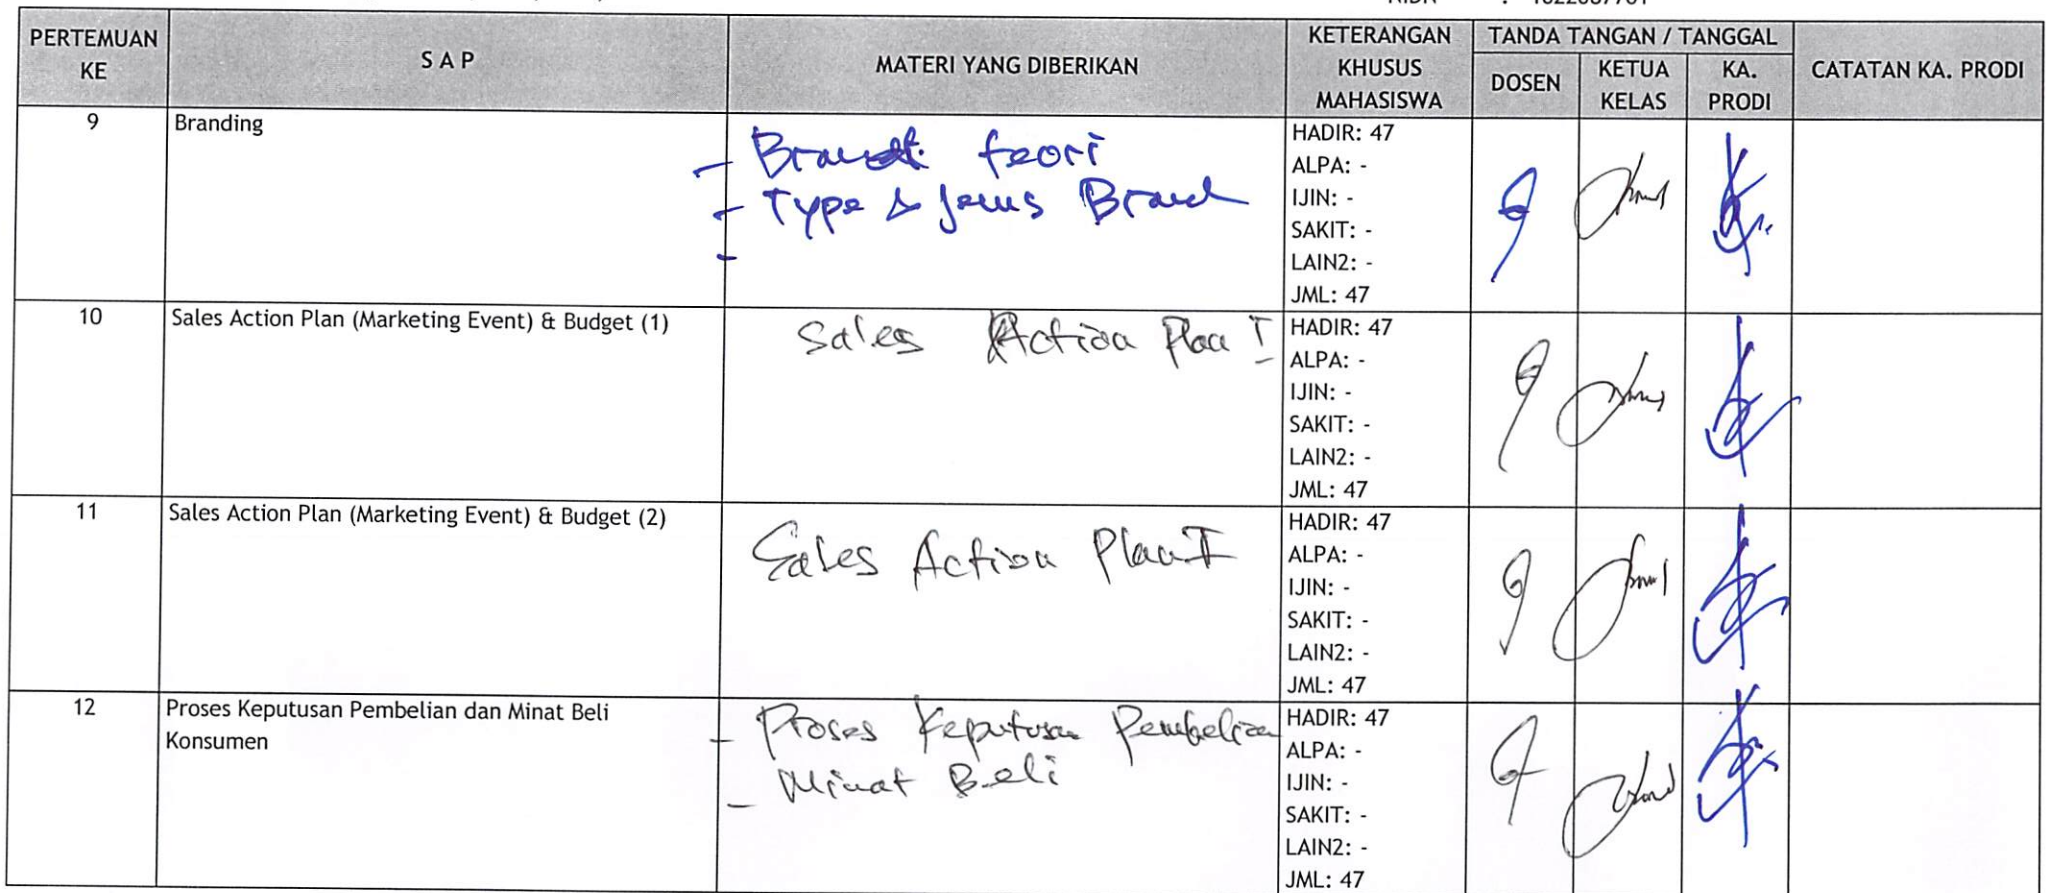 PERTEMUAN KE
S A P
MATERI YANG DIBERIKAN
KETERANGAN KHUSUS MAHASISWA
TANDA TANGAN / TANGGAL
DOSEN
KETUA KELAS
KA. PRODI
CATATAN KA. PRODI
9
Branding
- Brand teori
- Type & Jenis Brand
-
HADIR: 47
ALPA: -
IJIN: -
SAKIT: -
LAIN2: -
JML: 47
10
Sales Action Plan (Marketing Event) & Budget (1)
Sales Action Plan I
HADIR: 47
ALPA: -
IJIN: -
SAKIT: -
LAIN2: -
JML: 47
11
Sales Action Plan (Marketing Event) & Budget (2)
Sales Action Plan II
HADIR: 47
ALPA: -
IJIN: -
SAKIT: -
LAIN2: -
JML: 47
12
Proses Keputusan Pembelian dan Minat Beli
Konsumen
- Proses Keputusan Pembelian
- Minat Beli
HADIR: 47
ALPA: -
IJIN: -
SAKIT: -
LAIN2: -
JML: 47